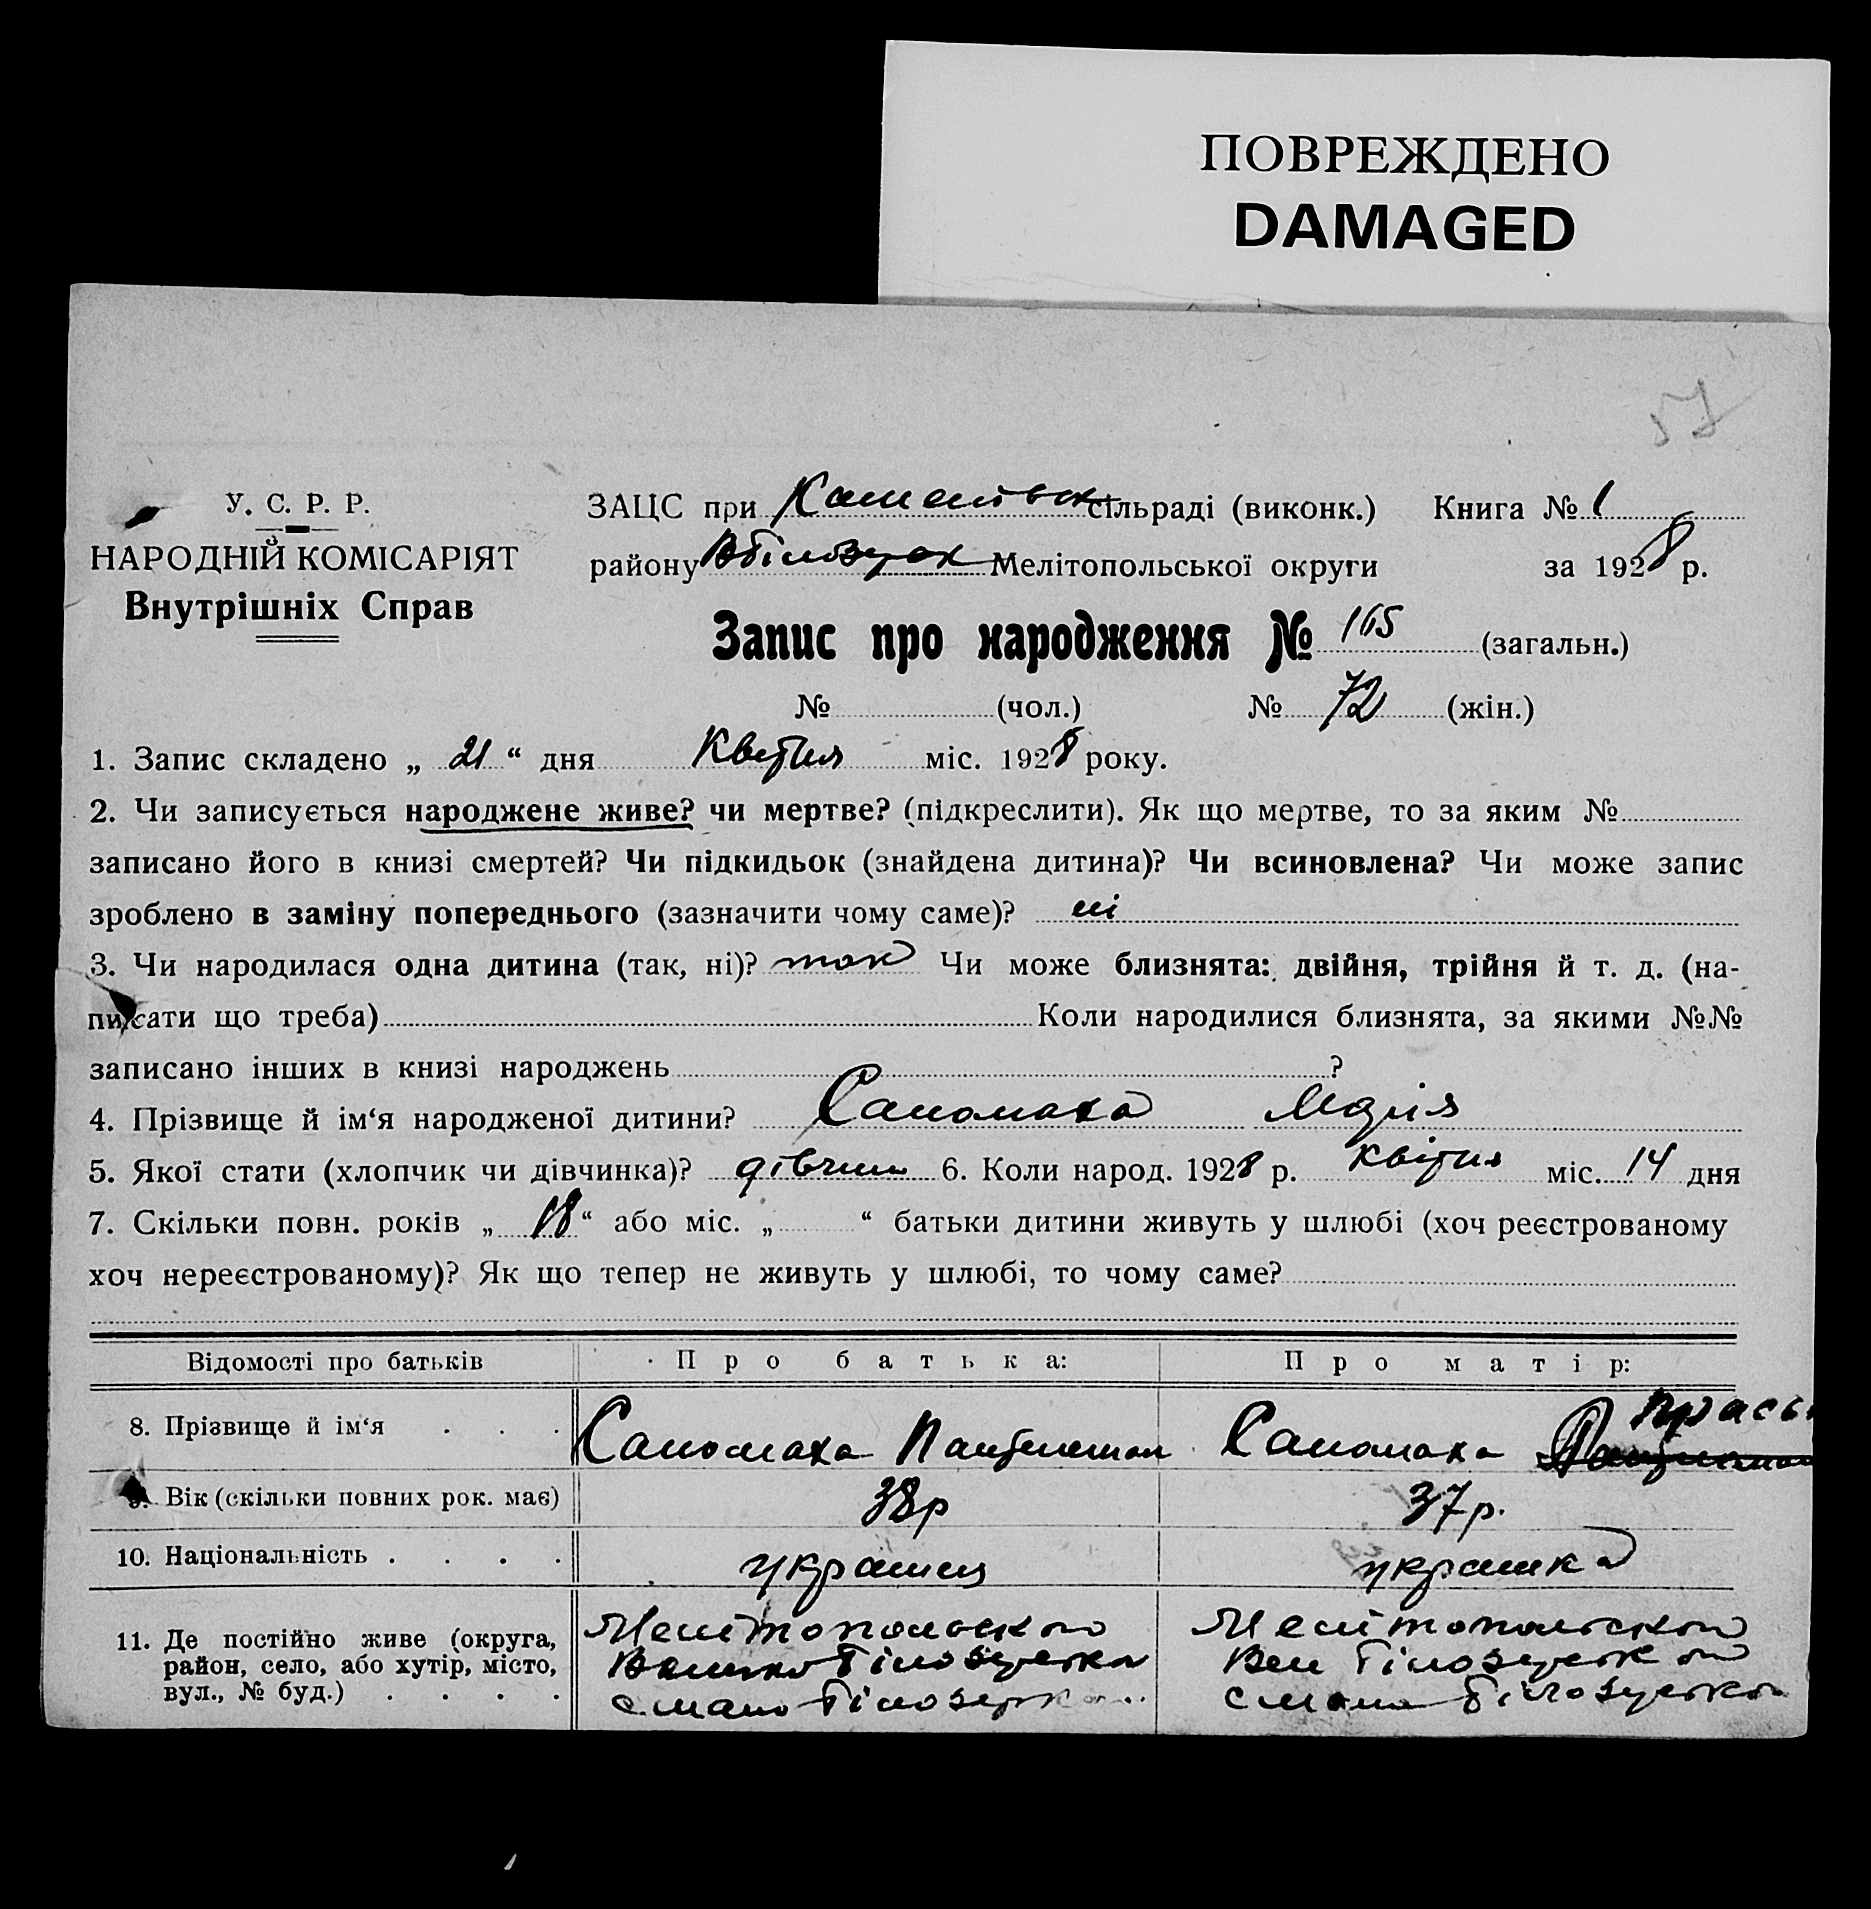 ПОВРЕЖДЕНО
DAMAGED
57
У. С. Р. Р.
НАРОДНІЙ КОМІСАРІЯТ
Внутрішніх Справ
ЗАЦС при Каменськ сільраді (виконк.) Книга № 1
району ВБілозерск Мелітопольської округи за 1928 р.
Запис про народження № 165 (загальн.)
№ (чол.) № 72 (жін.)
1. Запис складено „ 21 “ дня Квітня міс. 1928 року.
2. Чи записується народжене живе? чи мертве? (підкреслити). Як що мертве, то за яким №
записано його в книзі смертей? Чи підкидьок (знайдена дитина)? Чи всиновлена? Чи може запис
зроблено в заміну попереднього (зазначити чому саме)? ні
3. Чи народилася одна дитина (так, ні)? так Чи може близнята: двійня, трійня й т. д. (на-
писати що треба) Коли народилися близнята, за якими №№
записано інших в книзі народжень ?
4. Прізвище й ім‘я народженої дитини? Саломаха Марія
5. Якої стати (хлопчик чи дівчинка)? дівчин 6. Коли народ. 1928 р. квітня міс. 14 дня
7. Скільки повн. років „ 18 “ або міс. „ “ батьки дитини живуть у шлюбі (хоч реєстрованому
хоч нереєстрованому)? Як що тепер не живуть у шлюбі, то чому саме?
Відомості про батьків Про батька: Про матір:
8. Прізвище й ім‘я Саломаха Пантелемон Саломаха
9. Вік (скільки повних рок. має) 38р 37р.
10. Національність українец українка
11. Де постійно живе (округа,
район, село, або хутір, місто,
вул., № буд.)
Мелітопольська
Велико Білозерська
Мало Білозерка
Мелітопольська
Вел Білозерська
Мало Білозерка